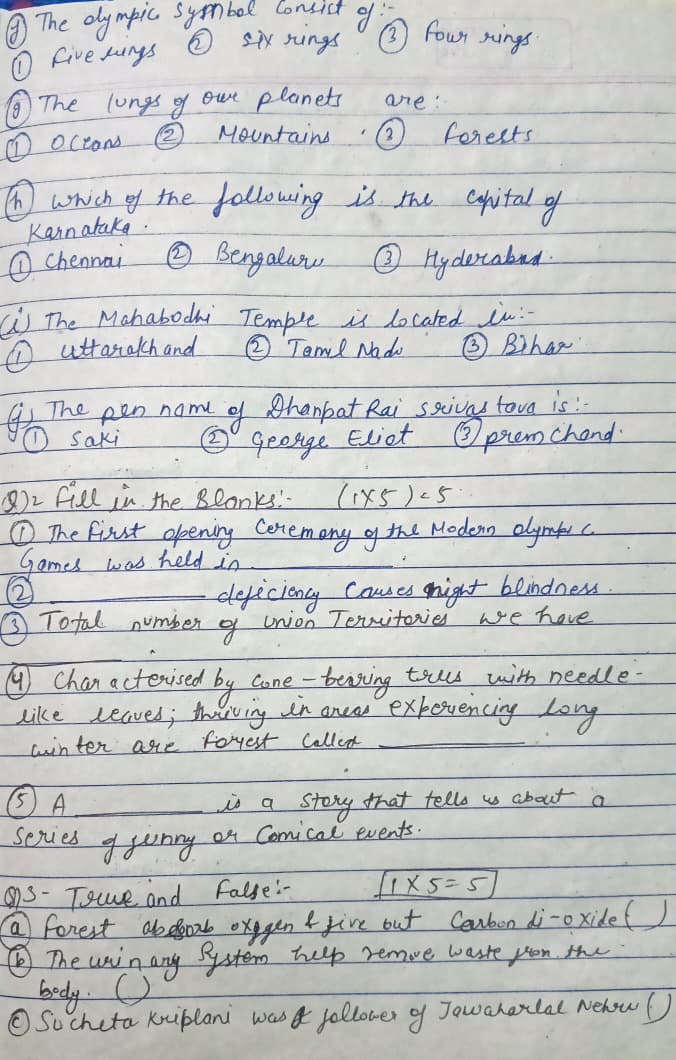 (f) The olympic Symbol Consist of:-
① five rings ② six rings ③ four rings.
(g) The lungs of our planets are:
① Oceans ② Mountains. ③ forests
(h) which of the following is the capital of
Karnataka.
① Chennai ② Bengaluru ③ Hyderabad.
(i) The Mahabodhi Temple is located in:-
① uttarakhand ② Tamil Nadu ③ Bihar
(j) The pen name of Dhanpat Rai srivastava is:-
① Saki ② George Eliot ③ prem Chand.
Q)2 fill in the Blanks:- (1x5)=5
① The first opening Ceremony of the Modern olympic
Games was held in ________.
② ________ deficiency Causes night blindness.
③ Total number of union Territories we have
④ Characterised by Cone-bearing trees with needle-
like leaves; thriving in areas experiencing long
winter are foryest Called ________.
⑤ A ________ is a story that tells us about a
Series of funny or Comical events.
Q)3- True and False:- [1x5=5]
(a) forest absorb oxygen & give out Carbon di-oxide ( )
(b) The urinary System help remove waste from the
body. ( )
(c) Sucheta Kriplani was a follower of Jawaharlal Nehru ( )